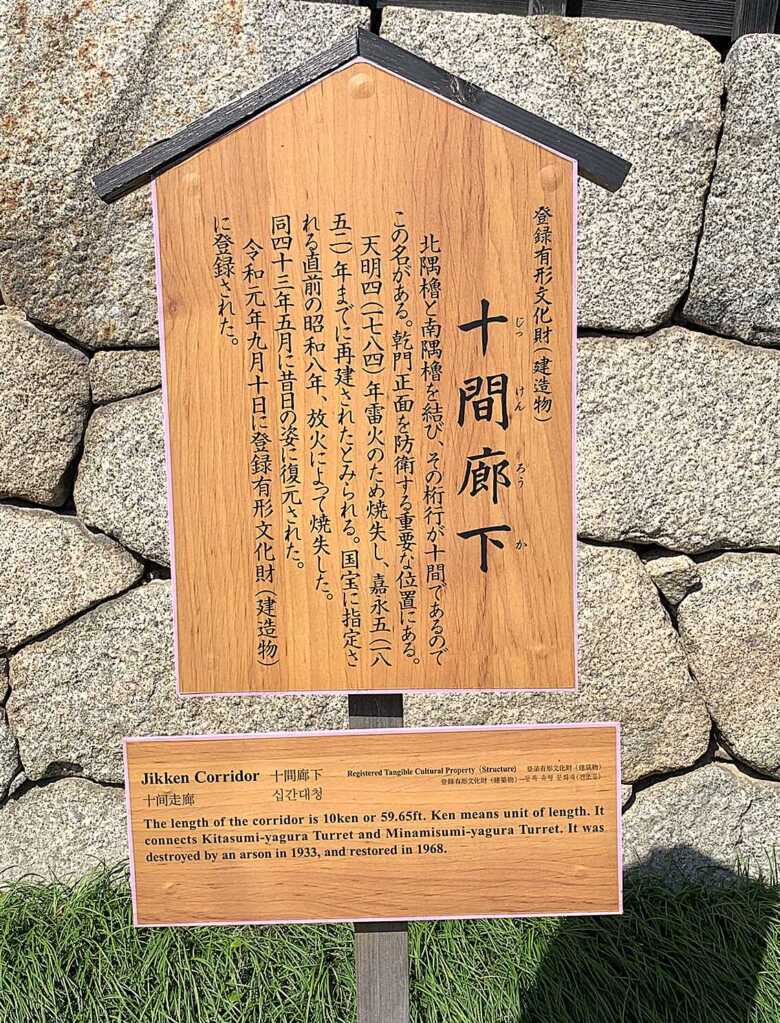 登録有形文化財(建造物)
十間廊下
じっ けん ろう か
北隅櫓と南隅櫓を結び、その桁行が十間であるので
この名がある。乾門正面を防衛する重要な位置にある。
天明四(一七八四)年雷火のため焼失し、嘉永五(一八
五二)年までに再建されたとみられる。国宝に指定さ
れる直前の昭和八年、放火によって焼失した。
同四十三年五月に昔日の姿に復元された。
令和元年九月十日に登録有形文化財(建造物)
に登録された。
Jikken Corridor 十間廊下 Registered Tangible Cultural Property (Structure)
十间走廊 십간대청
The length of the corridor is 10ken or 59.65ft. Ken means unit of length. It
connects Kitasumi-yagura Turret and Minamisumi-yagura Turret. It was
destroyed by an arson in 1933, and restored in 1968.